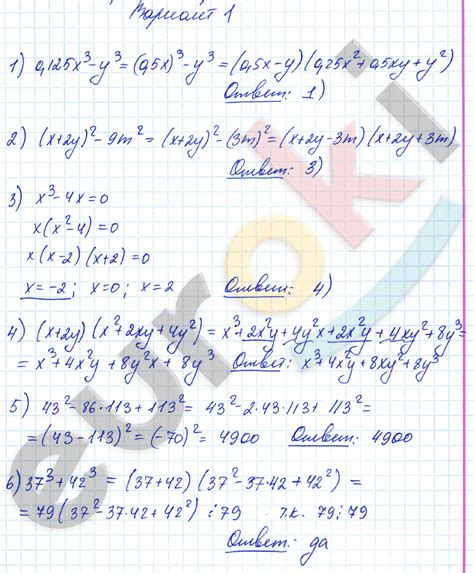 Вариант 1
1) 0,125x³-y³=(0,5x)³-y³=(0,5x-y)(0,25x²+0,5xy+y²)
Ответ: 1)
2) (x+2y)²-9m²=(x+2y)²-(3m)²=(x+2y-3m)(x+2y+3m)
Ответ: 3)
3) x³-4x=0
x(x²-4)=0
x(x-2)(x+2)=0
x=-2; x=0; x=2 Ответ: 4)
4) (x+2y)(x²+2xy+4y²)=x³+2x²y+4y²x+2x²y+4xy²+8y³=
=x³+4x²y+8y²x+8y³ Ответ: x³+4x²y+8xy²+8y³
5) 43²-86·113+113²=43²-2·43·113+113²=
=(43-113)²=(-70)²=4900 Ответ: 4900
6) 37³+42³=(37+42)(37²-37·42+42²)=
=79(37²-37·42+42²)⋮79 т.к. 79⋮79
Ответ: да
euroki